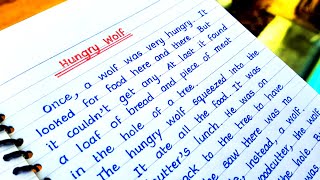 Hungry Wolf
Once, a wolf was very hungry. It
looked for food here and there. But
it couldn't get any. At last it found
a loaf of bread and piece of meat
in the hole of a tree.
The hungry wolf squeezed into the
It ate all the food. It was
cutter's lunch. He was on
back to the tree to have
he saw there was no
instead, a wolf
woodcutter, the wolf
the hole. But